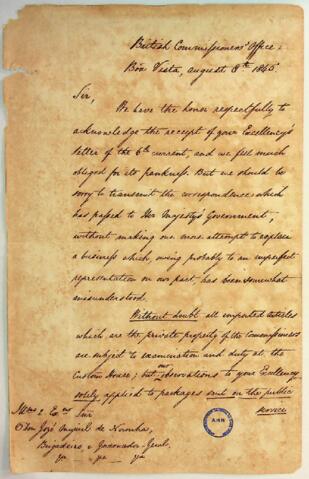 British Commissioners' Office,
Bôa Vista, August 8th 1845
Sir,
We have the honor respectfully to
acknowledge the receipt of your Excellency's
letter of the 6th current, and we feel much
obliged for its frankness. But we should be
sorry to transmit the correspondence which
has passed to Her Majesty's Government,
without making one more attempt to explain
a business which, owing probably to an imperfect
representation on our part, has been somewhat
misunderstood.
Without doubt all imported articles
which are the private property of the Commissioners
are subject to examination and duty at the
Custom House; but our observations to your Excellency
solely applied to packages sent on the public
service
Illmo e Exmo Snr
Dom José Miguel de Noronha,
Brigadeiro e Governador-Geral,
AHN